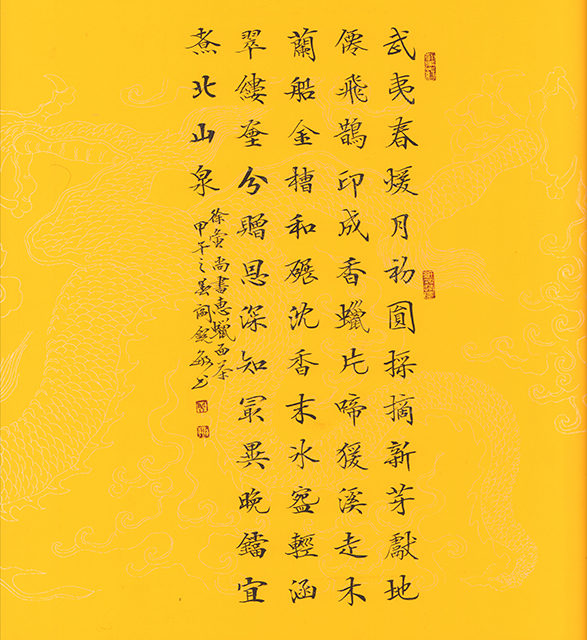 武夷春煖月初圓採摘新芽獻地
僊飛鵲印成香蠟片啼猨溪走木
蘭船金槽和碾沈香末氷盌輕涵
翠縷分贈恩深知冣異晚鐺宜
煮北山泉
徐夤尚書惠蠟面茶
甲午之春